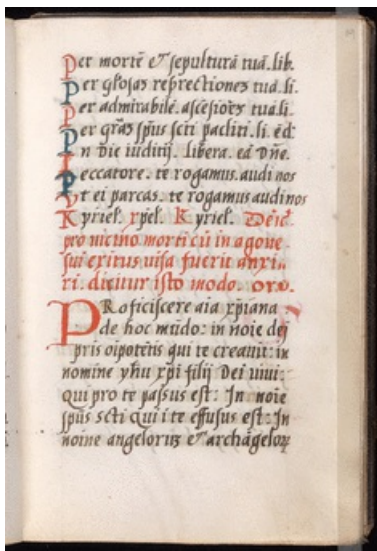 Per mortē & sepulturā tuā. lib.
Per glōsaȝ reſrectioneȝ tuā. li.
Per admirabilē. ascēsiōeȝ tuā li.
Per grāȝ sp̄us scti pacliti. li. ed̄
In die iuditij. libera. eā Dn̄e.
Peccatore. te rogamus. audi nos
Vt ei parcas. te rogamus audi nos
Kyriel. xp̄el. Kyriel. Deīc.
pro uicino morti cū in agone
sui exitus uisa fuerit anxi
ri. dicitur isto modo. oro.
PRoficiscere aīa xp̄iana
de hoc mūdo: in noīe dei
pr̄is oīpotētis qui te creauit: in
nomine yh̄u xp̄i filij Dei uiui:
qui pro te passus est: In noīe
sp̄us scti qui ī te effusus est: In
noīne angeloruȝ & archāgeloꝝ